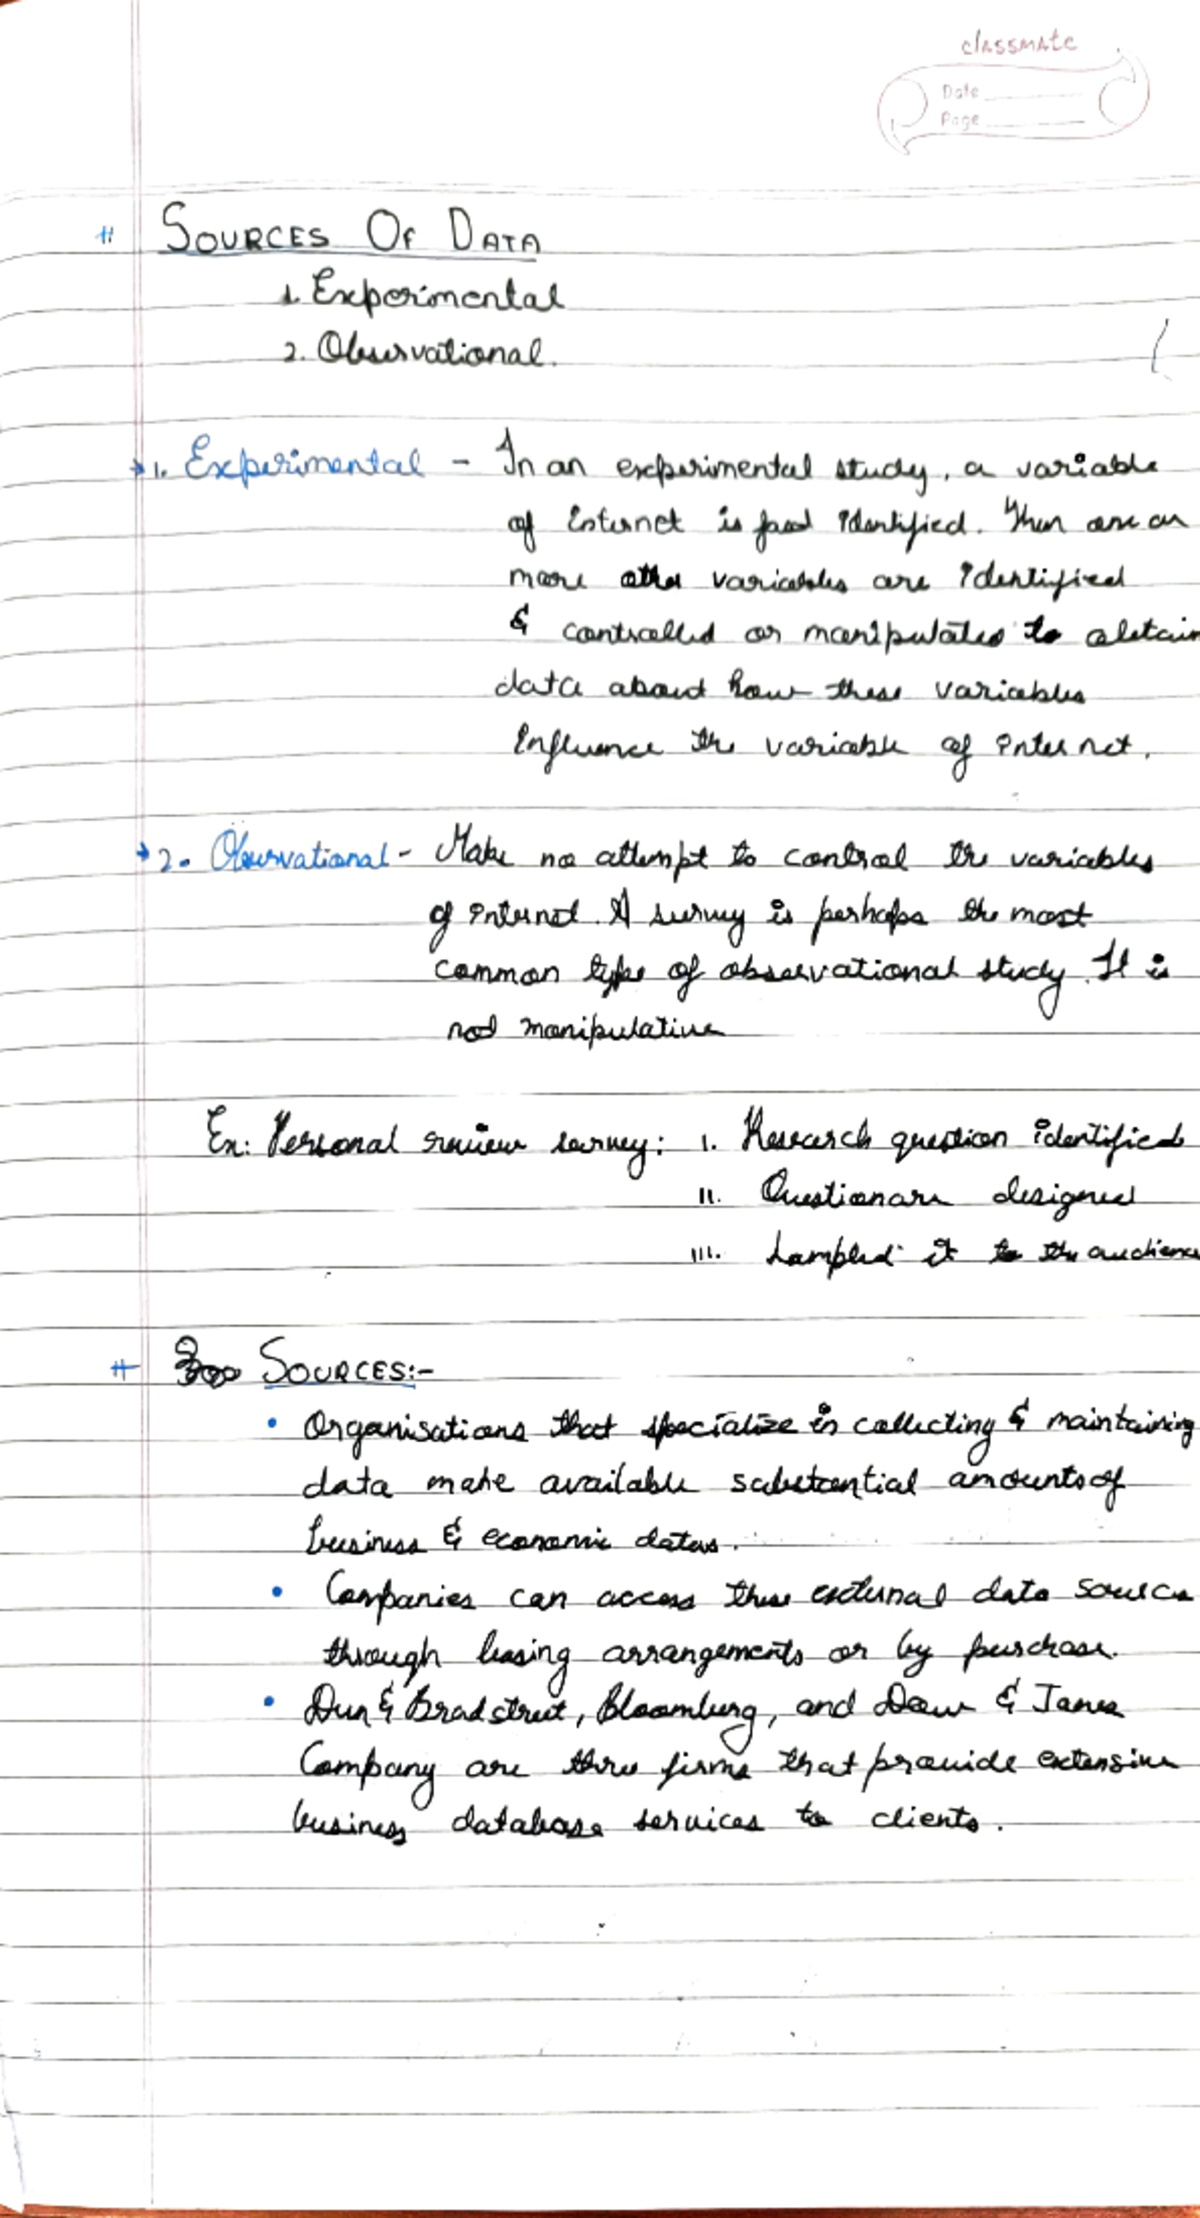 classmate
Date
Page
# SOURCES OF DATA
1. Experimental
2. Observational.
→1. Experimental - In an experimental study, a variable
of Internet is identified. Then one or
more other variables are identified
& controlled or manipulated to obtain
data about how these variables
Influence the variable of internet.
→2. Observational - Make no attempt to control the variables
of internet. A survey is perhaps the most
common type of observational study. It is
not manipulative
Ex: Personal review survey: I. Research question identified
II. Questionare designed
III. Sampled it to the audience
# SOURCES:-
• Organisations that specialize in collecting & maintaining
data make available substantial amounts of
business & economic datas.
• Companies can access these external data source
through leasing arrangements or by purchase.
• Dun & Bradstreet, Bloomberg, and Dow & Jones
Company are three firms that provide extensive
business database services to clients.